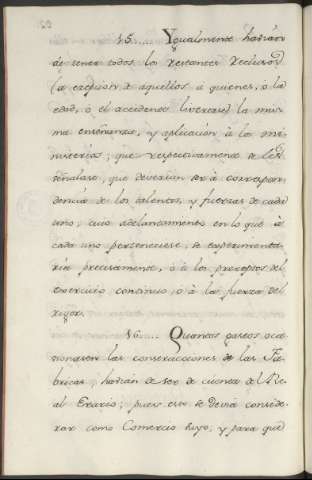 15. Ygualmente havian
de tener todos los restantes Reclusos
(a excepcion de aquellos a quienes, o la
edad, o el accidente livertare) la mis-
ma enseñanza, y aplicacion à los mi-
nisterios, que respectivamente se les
señalase, que deverian ser à correspon-
dencia de los talentos, y fuerzas de cada
uno; cuio adelantamiento en lo que à
cada uno perteneciese, se experimenta-
ria precisamente, ò à los preceptos del
exercicio continuo, ò à las fuerzas del
rigor.
16. Quantos gastos oca-
sionasen las construcciones de las Fa-
bricas, havian de ser de cuenta del Re-
al Erario; pues este se devia conside-
rar como Comercio suyo, y para que